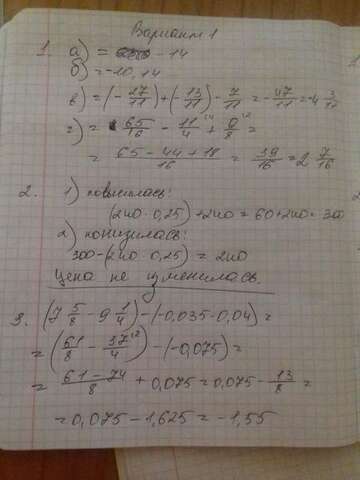 Вариант 1
1. а) = - 14
б) = -10,14
в) = (- 27/11) + (- 13/11) - 7/11 = - 47/11 = -4 3/11
г) = 65/16 - 11/4 + 9/8 =
= 65 - 44 + 18/16 = 39/16 = 2 7/16
2. 1) повысилась:
(240 · 0,25) + 240 = 60 + 240 = 300
2) понизилась:
300 - (240 · 0,25) = 240
Цена не изменилась.
3. (7 5/8 - 9 1/4) - (-0,035 - 0,04) =
= (61/8 - 37/4) - (-0,075) =
= 61 - 74/8 + 0,075 = 0,075 - 13/8 =
= 0,075 - 1,625 = -1,55